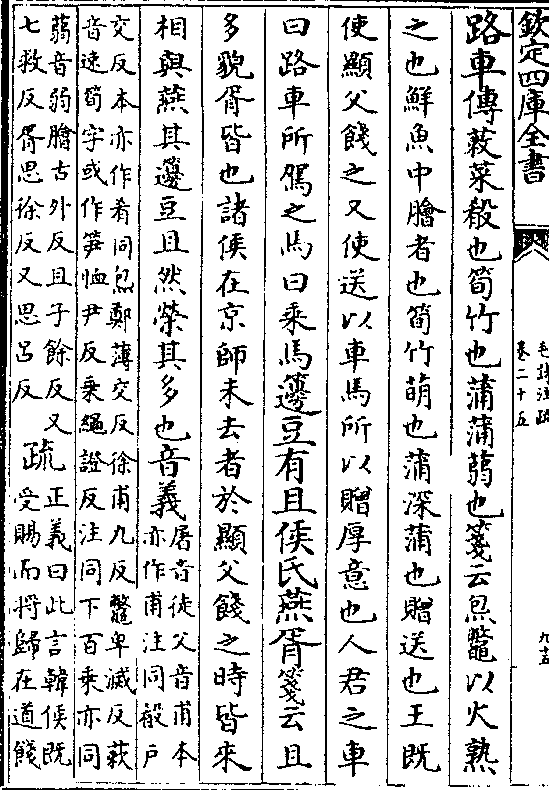 欽定四庫全書
毛詩注疏
卷二十五
九十五
路車傳蔌菜殽也筍竹也蒲蒲蒻也箋云炰鼈以火熟
之也鮮魚中膾者也筍竹萌也蒲深蒲也贈送也王既
使顯父餞之又使送以車馬所以贈厚意也人君之車
曰路車所駕之馬曰乘馬籩豆有且侯氏燕胥箋云且
多貌胥皆也諸侯在京師未去者於顯父餞之時皆來
相與燕其籩豆且然榮其多也音義屠音徒父音甫本
亦作甫注同殽戶
交反本亦作肴同炰鄭薄交反徐甫九反鼈卑滅反蔌
音速筍字或作笋恤尹反乘繩證反注同下百乘亦同
蒻音弱膾古外反且子餘反又
七救反胥思徐反又思呂反疏正義曰此言韓侯既
受賜而將歸在道餞